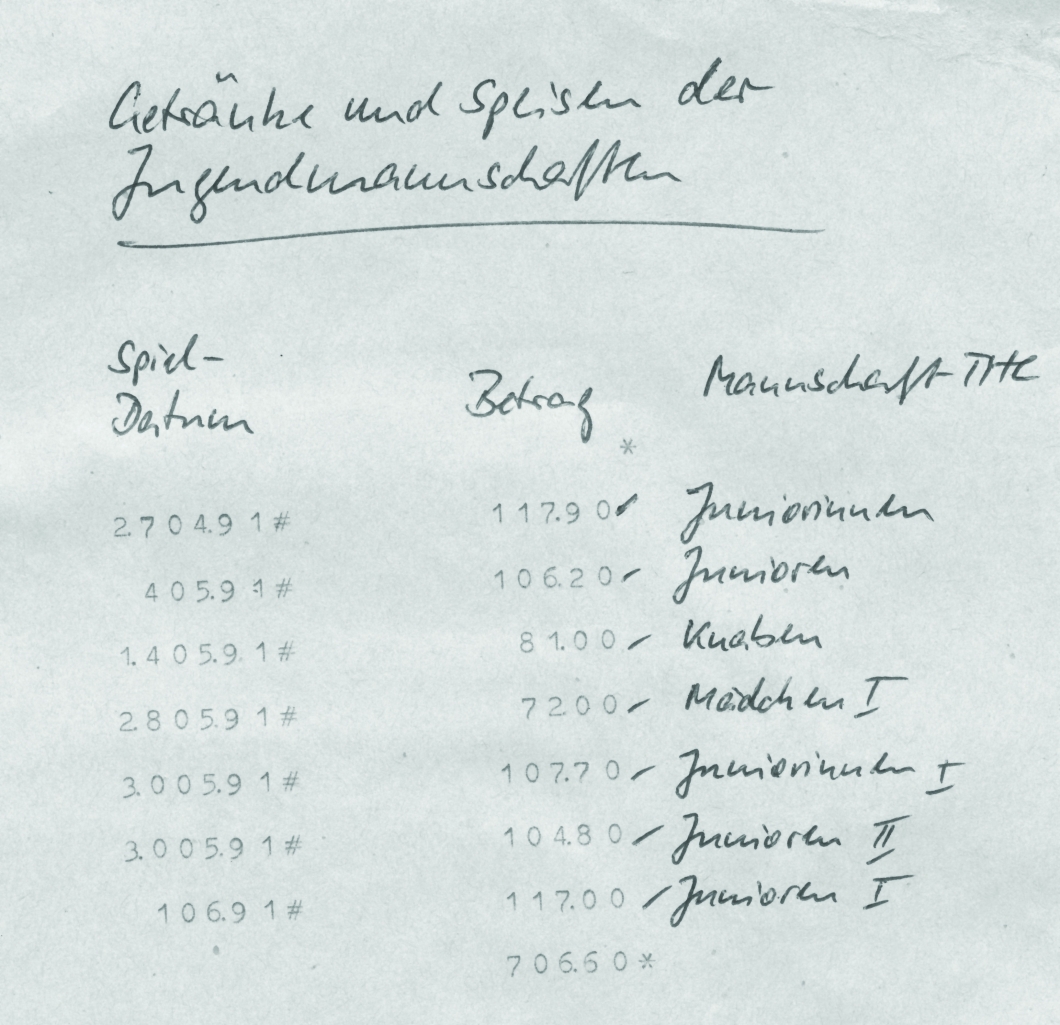 Getränke und Speisen der
Jugendmannschaften
Spiel-
Datum Betrag Mannschaft THC
*
2.704.91# 117.90 Juniorinnen
405.91# 106.20 Junioren
1.405.91# 81.00 Knaben
2.805.91# 72.00 Mädchen I
3.005.91# 107.70 Juniorinnen I
3.005.91# 104.80 Junioren II
106.91# 117.00 Junioren I
706.60*